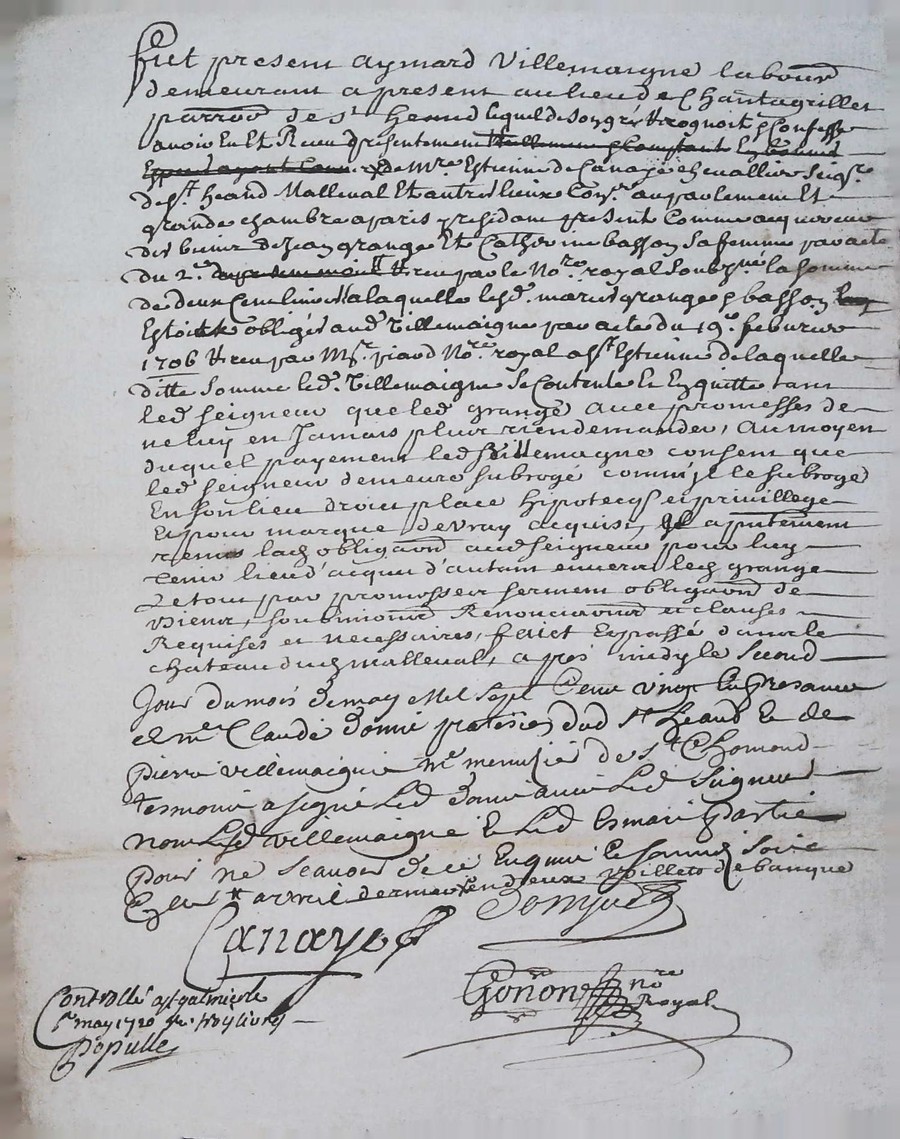 fut present aymard Villemaigne labour
demeurant a present au lieu de Chantagrillet
parroo de st heand lequel de son gré a recognoit & Confesse
avoir Eu Et Receu presentement
de Mre Estienne de Canaye chevallier seigr
de st heand Malleval Et autres lieux Conr au parlement Et
grande chambre a paris presidant present Comme acquereur
des biens de Jean grange Et Catherine basson sa femme par acte
du 2e receu par le Nore royal soubzné la somme
de deux Cens livres a laquelle lesd. mariés grange & basson
Estoit obligés aud Villemaigne par acte du 19e feburier
1706 receu par Mr piard Nore royal a st Estienne de laquelle
ditte somme led. Villemaigne se Contente En quitte tant
led seigneur que led grange avec promesses de
ne luy en Jamais plus rien demander, au moyen
duquel payement led Villemagne consent que
led seigneur demeure subrogé comm'jl le subroge
En son lieu droit place hipotecqs et privillege
Et pour marque de vray acquis, jl a presentement
remis lad obligaon aud seigneur pour luy
tenir lieu d'acquit d'autant envers led grange
Le tout par promesses serment obligaon de
biens, soubmions Renonciaons et clauses
Requises et necessaires, faict Et passé dans le
chateau dud malleval, apres midy le second
Jour du mois de may Mil sept Cens vingt En presance
de mre Claude donie praticien dud st heand Et de
pierre villemaigne me menusié de st Chomond
tesmoins a signé Led donie avec Led seigneur
non Led villemaigne & Led partie
pour ne scavoir de ce Enquis Et sommé
avril dernier en deux billets de banque
Canaye
Gonon nore
Royal
Controllé a st galmier le
may 1720 livres
Populle